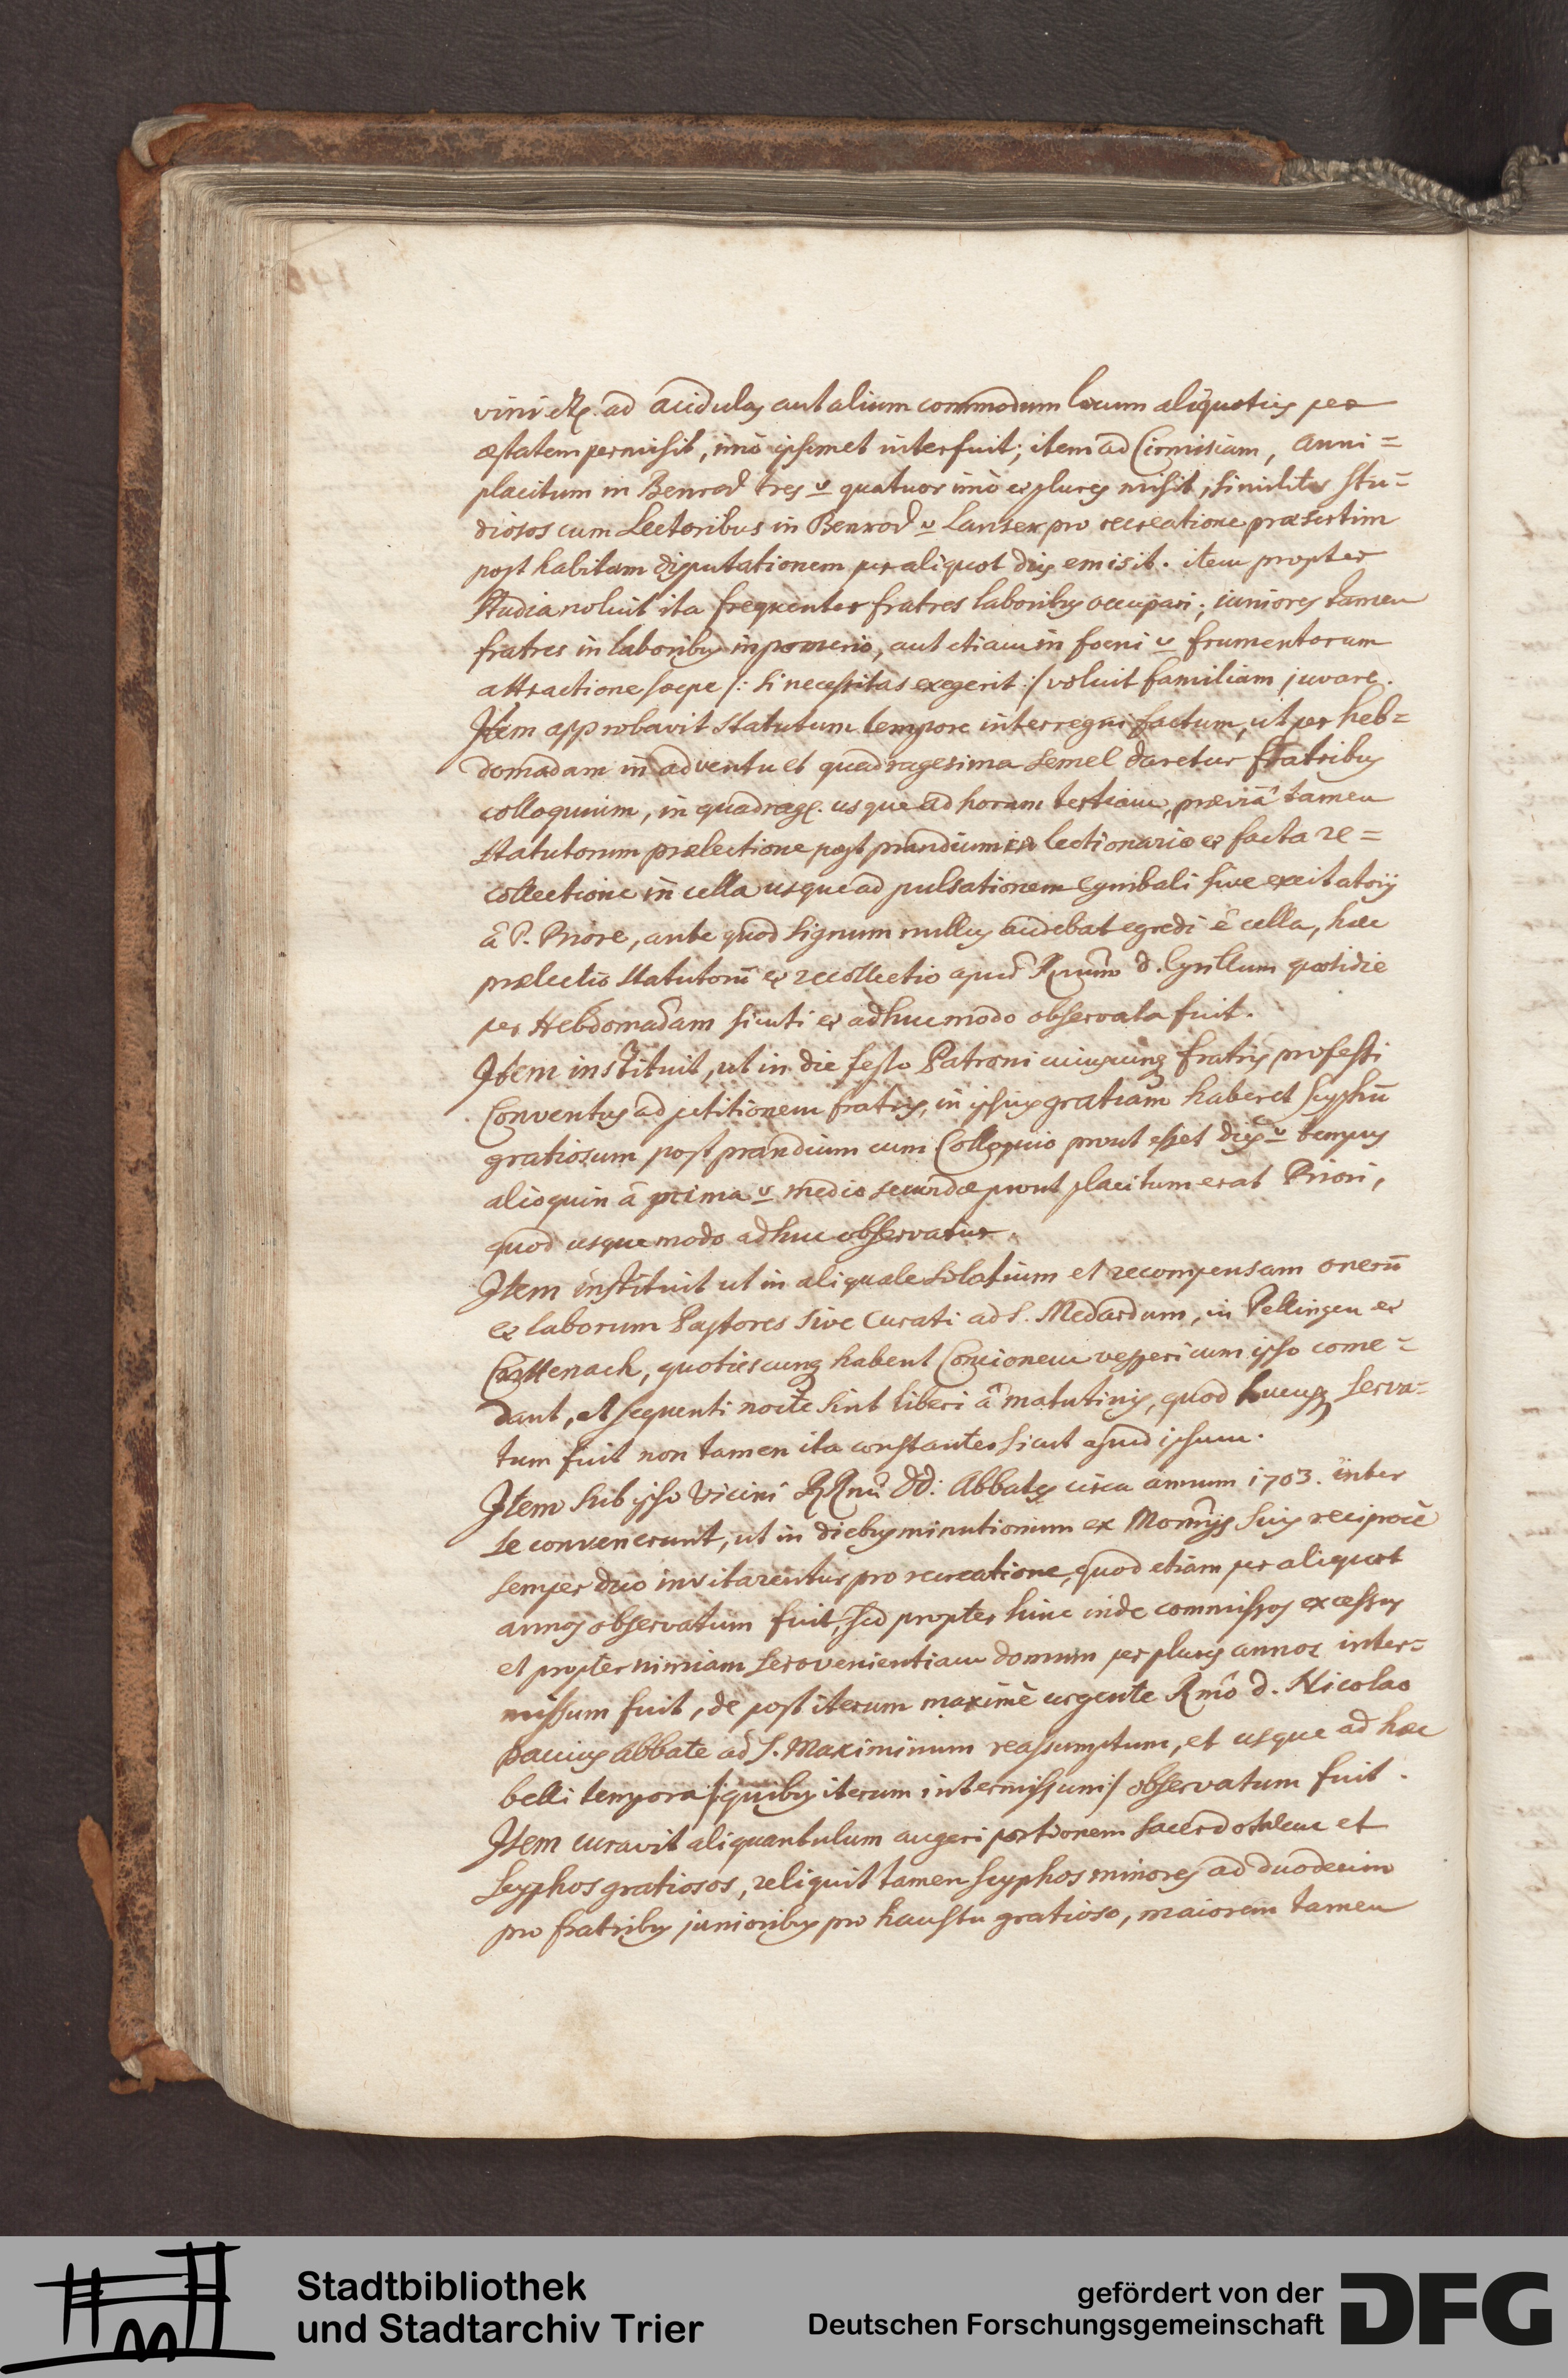 vini etc. ad acidulas aut alium commodum locum aliquoties per
æstatem permisit, imò ipsemet interfuit; item ad Cirmisiam, anni=
placitum in Benrod tres vel quatuor imò et plures misit, similiter stu=
diosos cum Lectoribus in Benrod vel Lanser pro recreatione præsertim
post habitam disputationem per aliquot dies emisit. item propter
studia noluit ita frequenter fratres laboribus occupari; iuniores tamen
fratres in laboribus in pomerio, aut etiam in foeni vel frumentorum
attractione saepe /: si necessitas exegerit :/ voluit familiam juvare.
Item approbavit statutum tempore interregni factum, ut per heb=
domadam in adventu et quadragesima semel daretur fratribus
colloquium, in quadrages. usque ad horam tertiam, præviâ tamen
statutorum prælectione post prandium in lectionario et facta re=
collectione in cella usque ad pulsationem cymbali sive excitatorij
â P. Priore, ante quod signum nullus audebat egredi ê cella, hæc
prælectio statutorū et recollectio apud Rmum D. Cyrillum quotidie
per Hebdomadam sicuti et adhuc modo observata fuit.
Item instituit, ut in die festo Patroni cuiuscunq fratris professi
Conventus ad petitionem fratris, in ipsius gratiam haberet scyphū
gratiosum post prandium cum Colloquio prout esset dies vel tempus
alioquin â prima vel media secundæ prout placitum erat Priori,
quod usque modo adhuc observatur.
Item instituit ut in aliquale solatium et recompensam onerū
et laborum Pastores sive Curati ad S. Medardum, in Pellingen et
Crettenach, quotiescunq habent Concionem vesperi cum ipso come=
dant, et sequenti nocte sint liberi â matutinis, quod hucusq serva=
tum fuit non tamen ita constanter sicut apud ipsum.
Item sub ipso Vicini RRmi DD. Abbates circa annum 1703. inter
se convenerunt, ut in diebus minutionum ex Monrijs suis reciprocè
semper duo invitarentur pro recreatione, quod etiam per aliquot
annos observatum fuit, sed propter hinc inde commissos excessus
et propter nimiam serovenientiam domum per plures annos inter=
missum fuit, de post iterum maximè urgente Rmô D. Nicolao
Paccius Abbate ad S. Maximinum reassumptum, et usque ad hæc
belli tempora /:quibus iterum intermissum:/ observatum fuit.
Item curavit aliquantulum augeri portionem sacerdotalem et
scyphos gratiosos, reliquit tamen scyphos minores ad duodecim
pro fratribus junioribus pro haustu gratioso, maiorem tamen
Stadtbibliothek
und Stadtarchiv Trier
gefördert von der
Deutschen Forschungsgemeinschaft
DFG